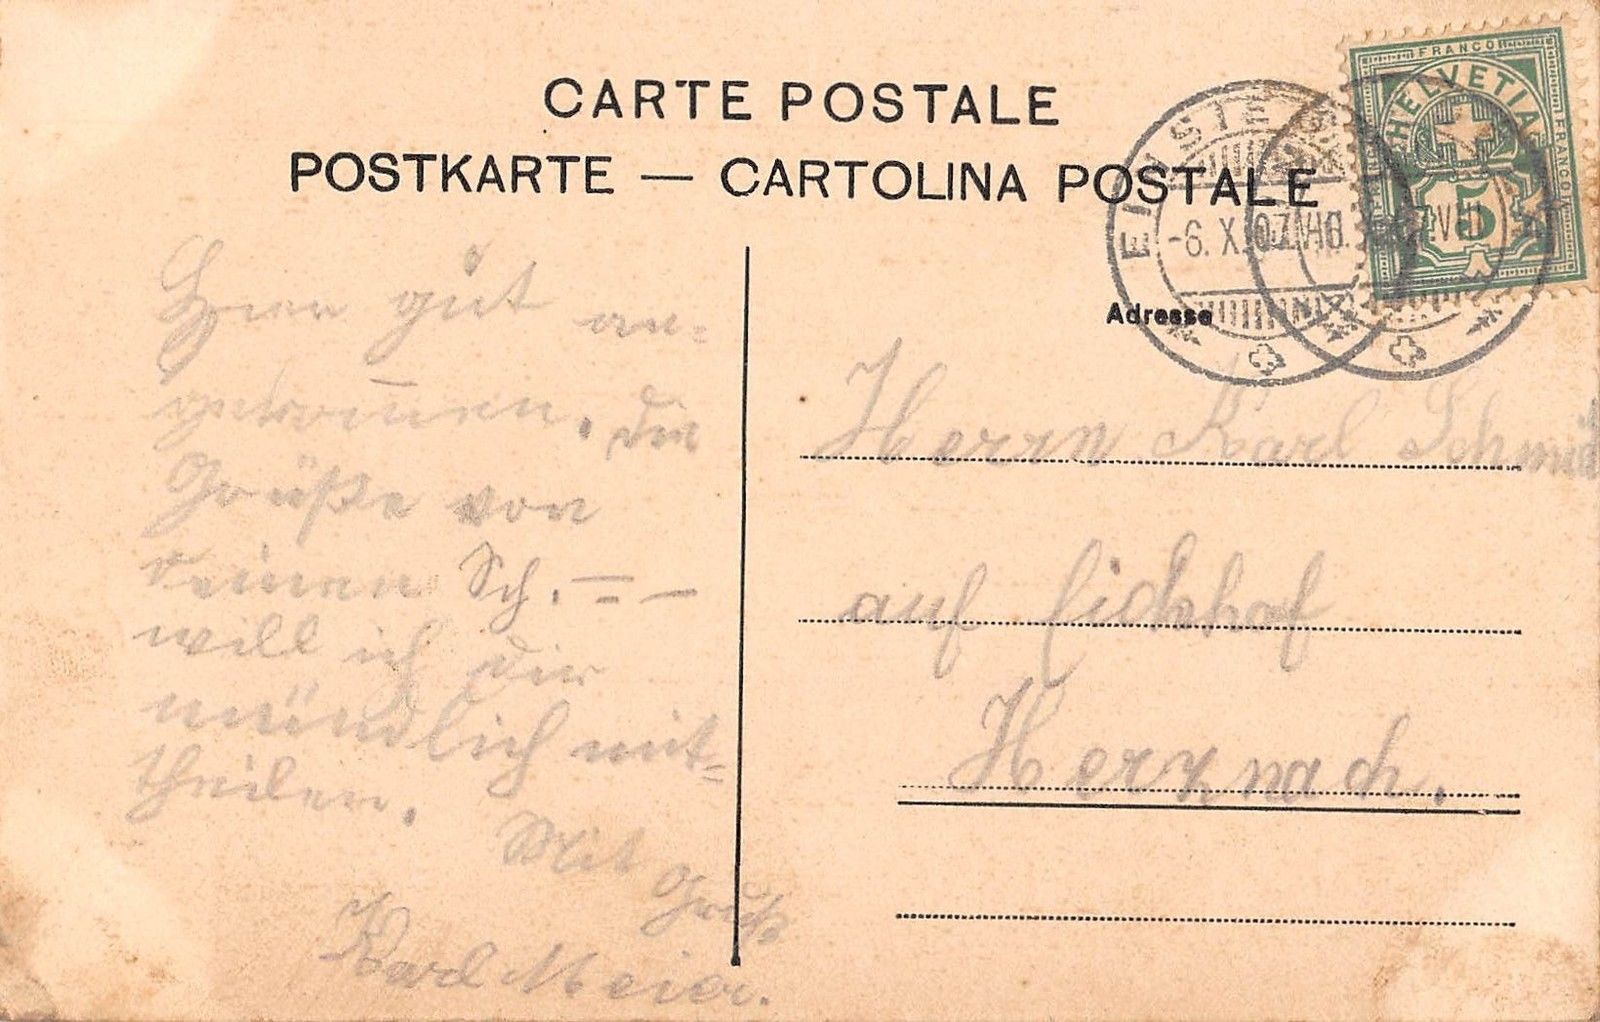 CARTE POSTALE
POSTKARTE — CARTOLINA POSTALE
FRANCO
HELVETIA
FRANCO
5
EINSIEDELN
-6. X. 07. VIII
Adresse
Herrn Karl Schmid
auf Eickhof
Herznach.
Hier gut an-
gekom̅en. Die
Grüße von
deinen Sch. = –
will ich dir
mündlich mit-
theilen.
Mit
Gruß
Karl Meier.